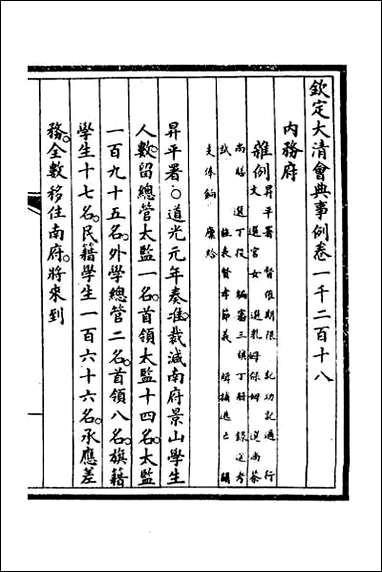 欽定大清會典事例卷一千二百十八
內務府
雜例 昇平署 督催期限 記功記過 行
文 選宮女 選乳母保姆 選尚茶
尚膳 選丁役 編審三旗丁册 錄送考
試 旌表賢孝節義 緝捕逃亡 關
支俸餉 廩給
昇平署○道光元年奏准裁減南府景山學生
人數。留總管太監一名。首領太監十四名。太監
一百九十五名。外學總管二名。首領八名。旗籍
學生十七名。民籍學生一百六十六名。承應差
務。全數移住南府。將來到